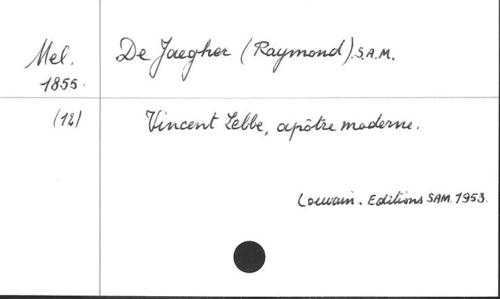 Mel. De Jaegher (Raymond). S.A.M.
1855.
(12) Vincent Lebbe, apôtre moderne.
Louvain. Editions SAM. 1953.